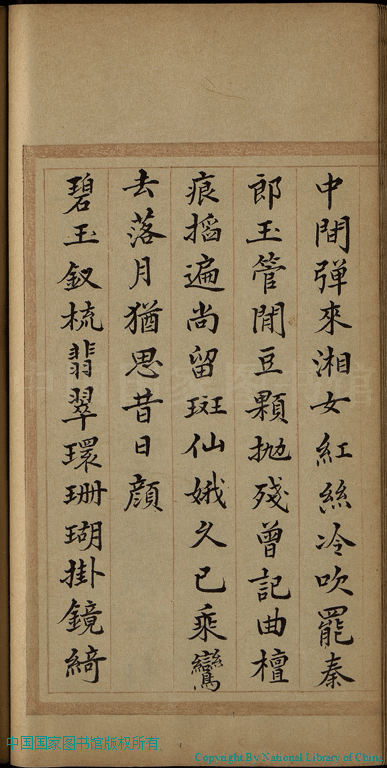 中間彈來湘女紅絲冷吹罷秦
郎玉管閒豆顆拋殘曾記曲檀
痕搯遍尚留斑仙娥久已乘鸞
去落月猶思昔日顔
碧玉釵梳翡翠環珊瑚掛鏡綺
中国国家图书馆版权所有
Copyright By National Library of China